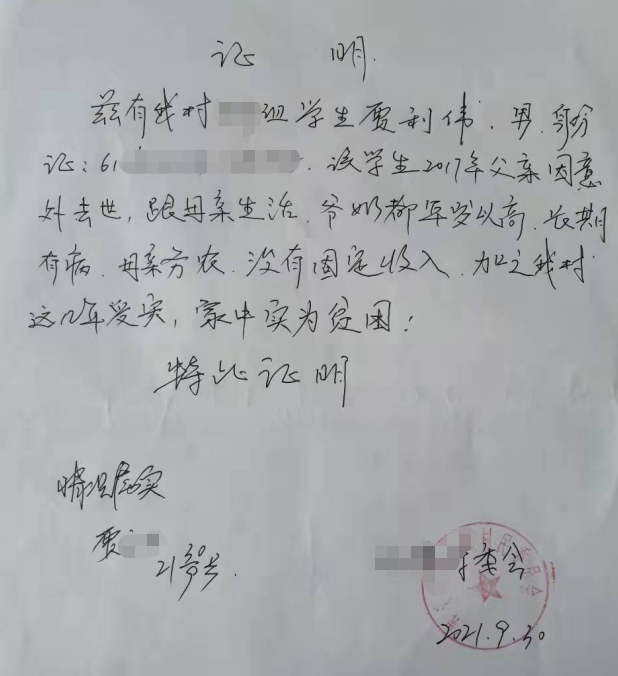 证 明
兹有我村 组学生贾利伟，男，身份
证：61 ，该学生2017年父亲因意
外去世，跟母亲生活，爷奶都年岁以高，长期
有病，母亲务农，没有固定收入，加之我村
这几年受灾，家中实为贫困！
特此证明
情况属实
贾
村委会
2021.9.30